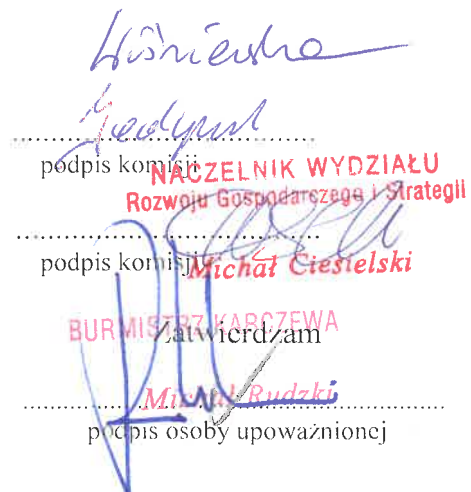 Wiśniewska
podpis komisji
NACZELNIK WYDZIAŁU
Rozwoju Gospodarczego i Strategii
podpis komisji
Michał Ciesielski
BURMISTRZ KARCZEWA
Zatwierdzam
Michał Rudzki
podpis osoby upoważnionej